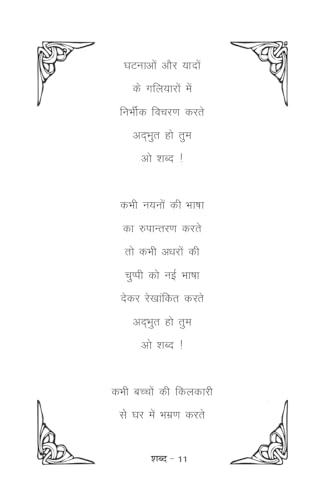 घटनाओं और यादों
के गलियारों में
निर्भीक विचरण करते
अद्भुत हो तुम
ओ शब्द !
कभी नयनों की भाषा
का रुपान्तरण करते
तो कभी अधरों की
चुप्पी को नई भाषा
देकर रेखांकित करते
अद्भुत हो तुम
ओ शब्द !
कभी बच्चों की किलकारी
से घर में भम्रण करते
शब्द - 11